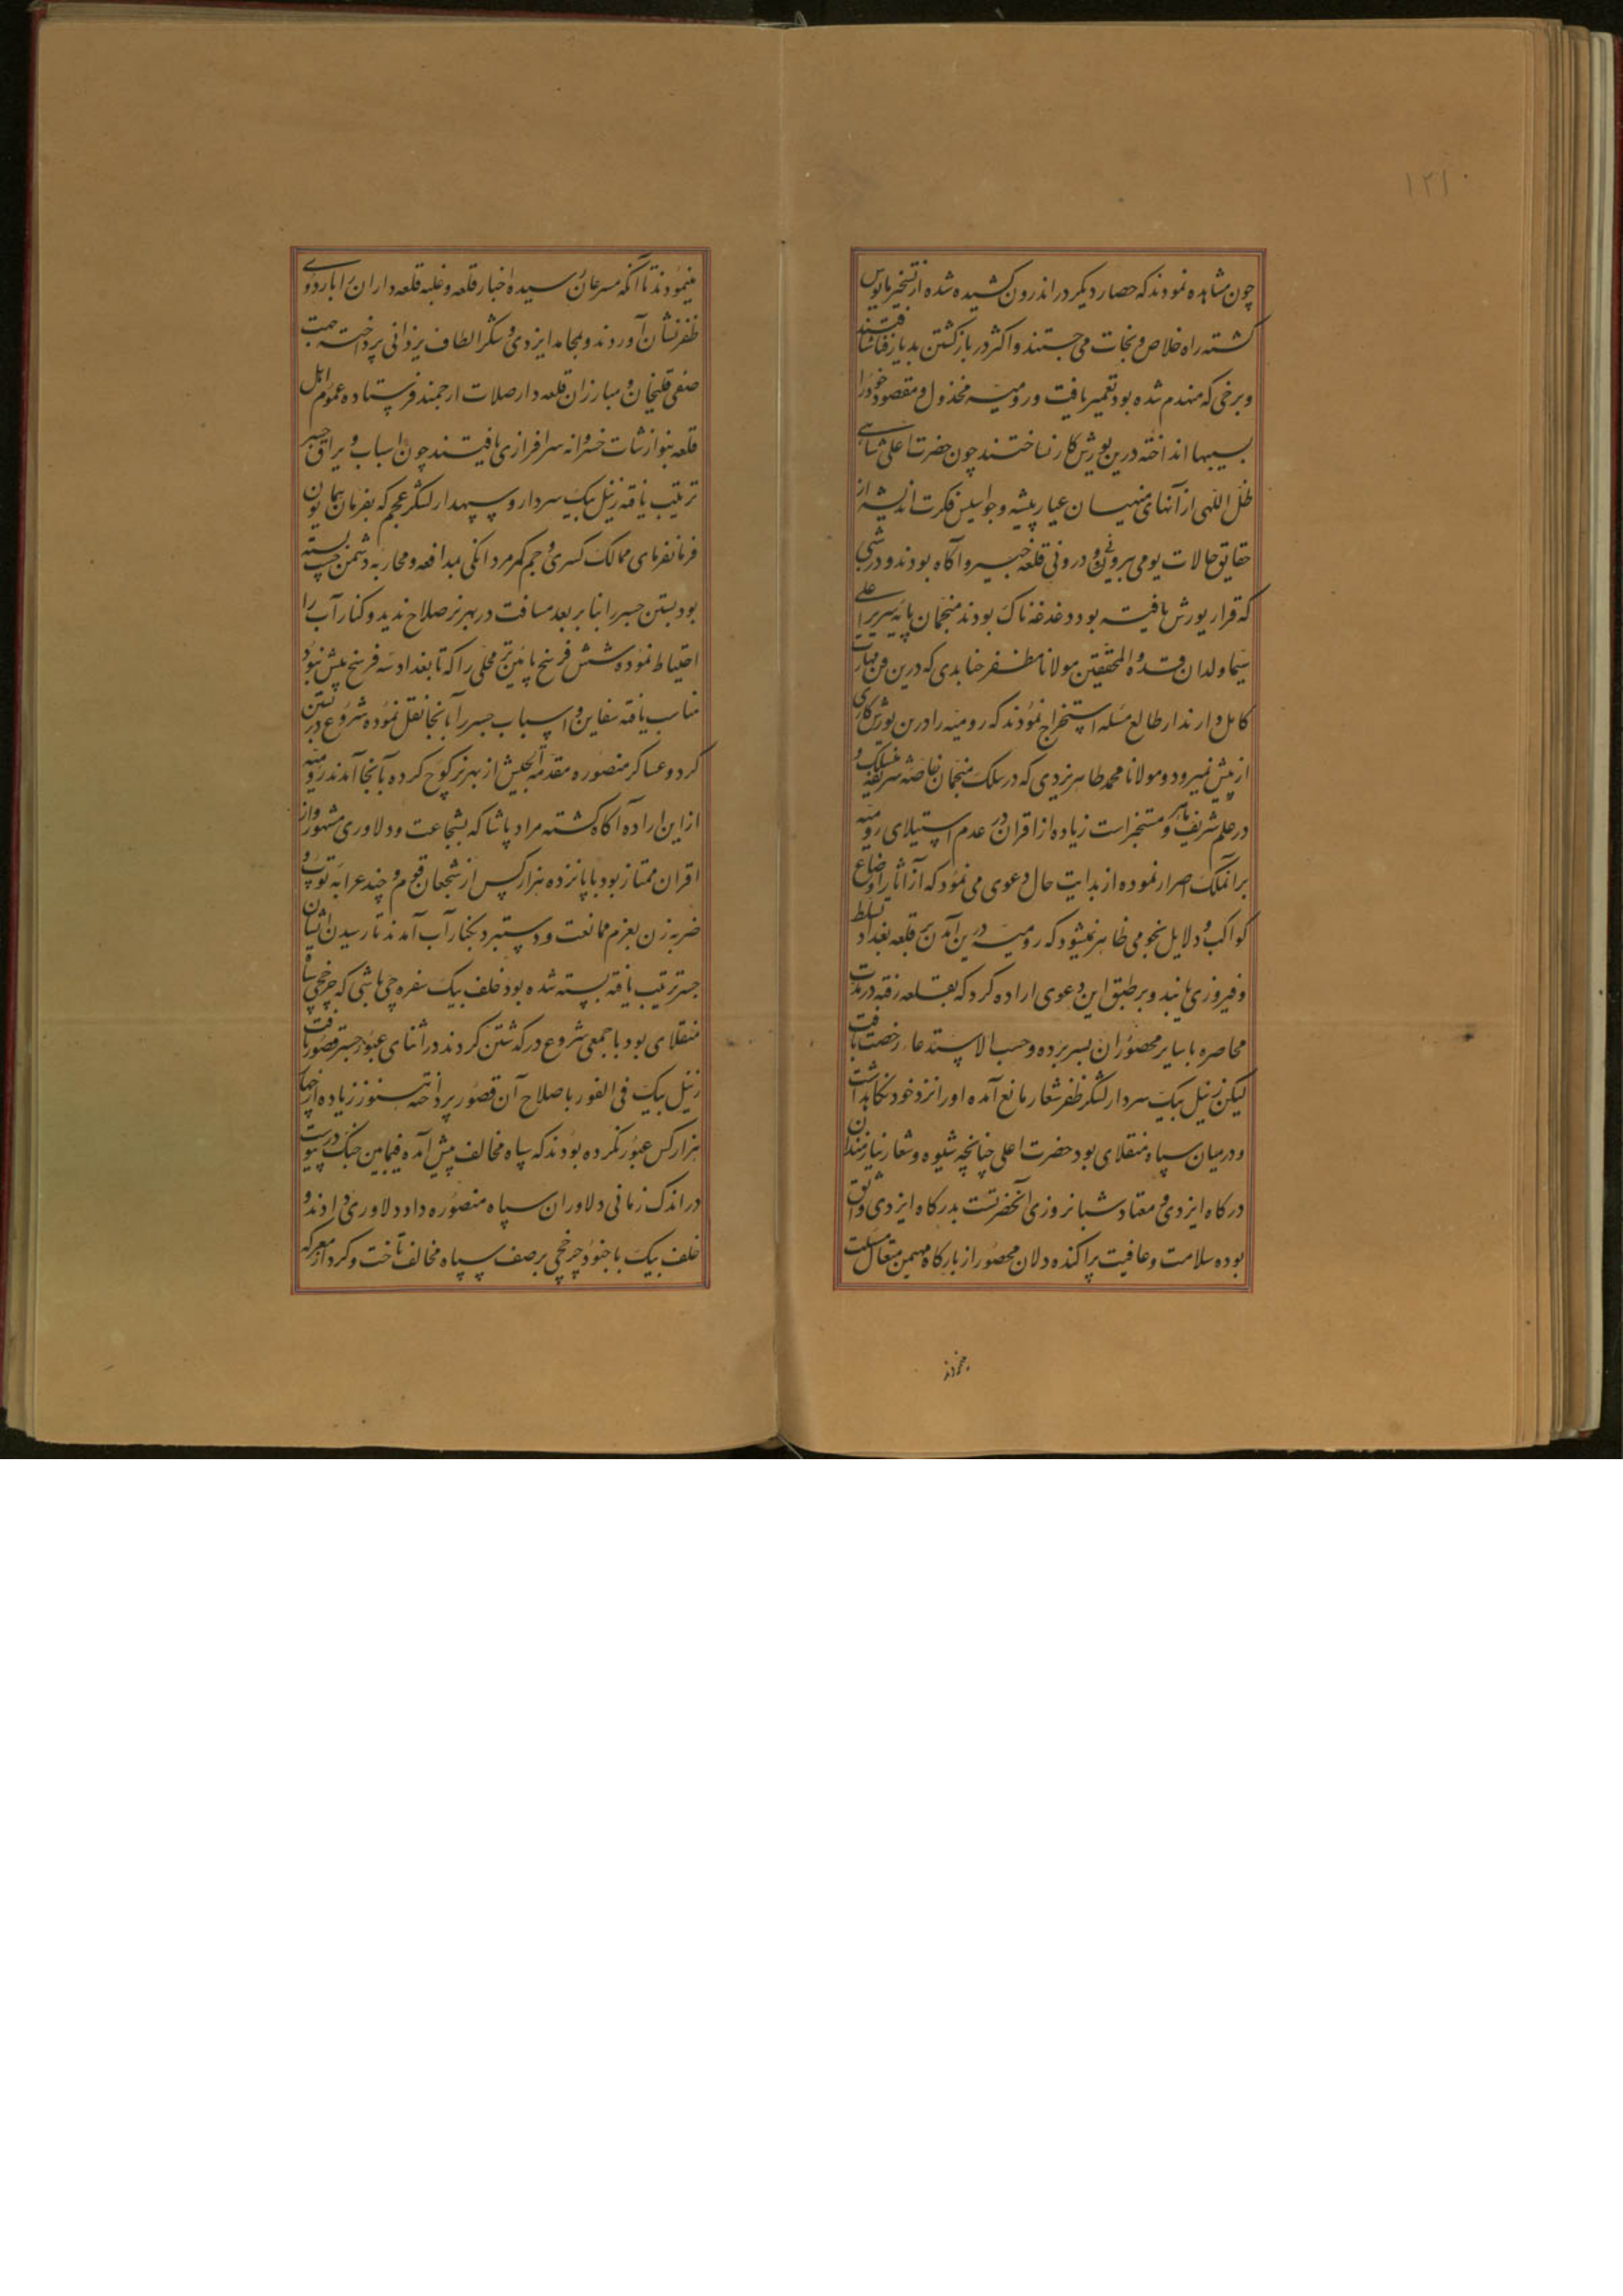 ۱۲۱۰
چون مشاهده نمودند که حصار دیگر در اندرون کشیده شده از تسخیر مایوس
کشته راه خلاص و نجات می جستند و اکثر در بازکشتن بدیار فنا شتافتند
و برخی که منهدم شده بود تعمیر یافت و رومیه مخذول و مقصود خود را
بسیبها انداخته درین یورش کار نساختند چون حضرت اعلی شاهی
ظل اللهی از آنهای منهیان عیار پیشه و جواسیس فکرت اندیشه از
حقایق حالات یومی بیرونی و درونی قلعه خبیر و آکاه بودند و در شبی
که قرار یورش یافته بود دغدغه ناک بودند منجمان پایه سریر اعلی
سیما ولدان قدوة المحققین مولانا مظفر جنابدی که درین فن مهارت
کامل دارند از طالع مسله استخراج نمودند که رومیه را درین یورش کاری
از پیش نمیرود و مولانا محمد طاهر یزدی که در سلک منجمان خاصه شریفه منسلک و
در علم شریف ماهر و مستحضر است زیاده از اقران در عدم استیلای رومیه
بر آنملک اصرار نموده از بدایت حال دعوی می نمود که از آثار اوضاع
کواکب و دلایل نجومی ظاهر نمیشود که رومیه درین آمدن بر قلعه بغداد تسلط
و فیروزی یابند و بر طبق این دعوی اراده کرد که بقلعه رفته در مدت
محاصره با سایر محصوران بسر برده و حسب الاستدعاء رخصت یافت
لیکن زینل بیک سردار لشکر ظفر شعار مانع آمده او را نزد خود نکاهداشت
و در میان سپاه منقلای بود حضرت اعلی چنانچه شیوه و شعار نیازمندان
درکاه ایزدی و معتاد شبانروزی آنحضرتست بدرکاه ایزدی واثق
بوده سلامت و عافیت پراکنده دلان محصور از بارکاه مهیمن متعال مسئلت
مینمودند تا آنکه مسرعان رسیده اخبار قلعه و غلبه قلعه داران را باردوی
ظفرنشان آوردند و بمحامد ایزدی و شکر الطاف یزدانی پرداخته جهت
صفی قلیخان و مبارزان قلعه دار صلات ارجمند فرستاده عموم اهل
قلعه بنوازشات خسروانه سرافرازی یافتند چون اسباب و یراق جسر
ترتیب یافته زینل بیک سردار و سپهدار لشکر عجم که بفرمان همایون
فرمانفرمای ممالک کسری و جم کمر مردانکی بمدافعه و محاربه دشمن چست بسته
بود بستن جسر را بنابر بعد مسافت در بهرز صلاح ندید و کنار آب را
احتیاط نموده شش فرسخ پائین تر محلی را که تا بغداد سه فرسخ بیش نبود
مناسب یافته سفاین و اسباب جسر را بآنجا نقل نموده شروع در بستن
کرد و عساکر منصوره مقدمة الجیش از بهرز کوچ کرده بآنجا آمدند رومیه
از این اراده آکاه کشته مراد پاشا که بشجاعت و دلاوری مشهور و از
اقران ممتاز بود با پانزده هزار کس از شجعان قوم و چند عرابه توپ و
ضربه زن بعزم ممانعت و دستبرد بکنار آب آمدند تا رسیدن ایشان
جسر ترتیب یافته بسته شده بود خلف بیک سفره چی باشی که چرخچی سپاه
منقلای بود با جمعی شروع در کذشتن کردند در اثنای عبور جسر قصور یافت
زینل بیک فی الفور باصلاح آن قصور پرداخته هنوز زیاده از چهار
هزار کس عبور نکرده بودند که سپاه مخالف پیش آمده فیمابین جنک در پیوست
در اندک زمانی دلاوران سپاه منصوره داد دلاوری دادند و
خلف بیک با جنود چرخچی بر صف سپاه مخالف تاخت و کرد از معرکه